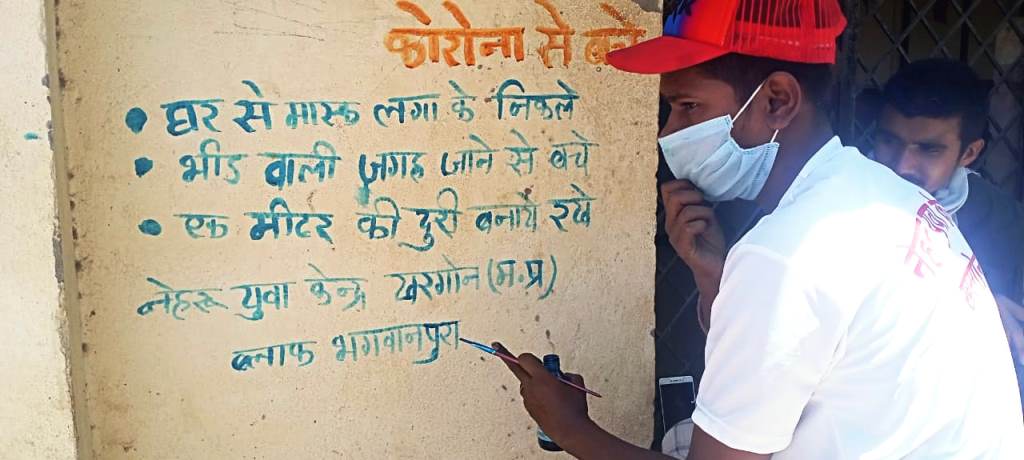 कोरोना से बचे
• घर से मास्क लगा के निकले
• भीड वाली जगह जाने से बचे
• एक मीटर की दुरी बनाये रखे
नेहरू युवा केन्द्र खरगोन (म.प्र)
ब्लाक भगवानपुरा